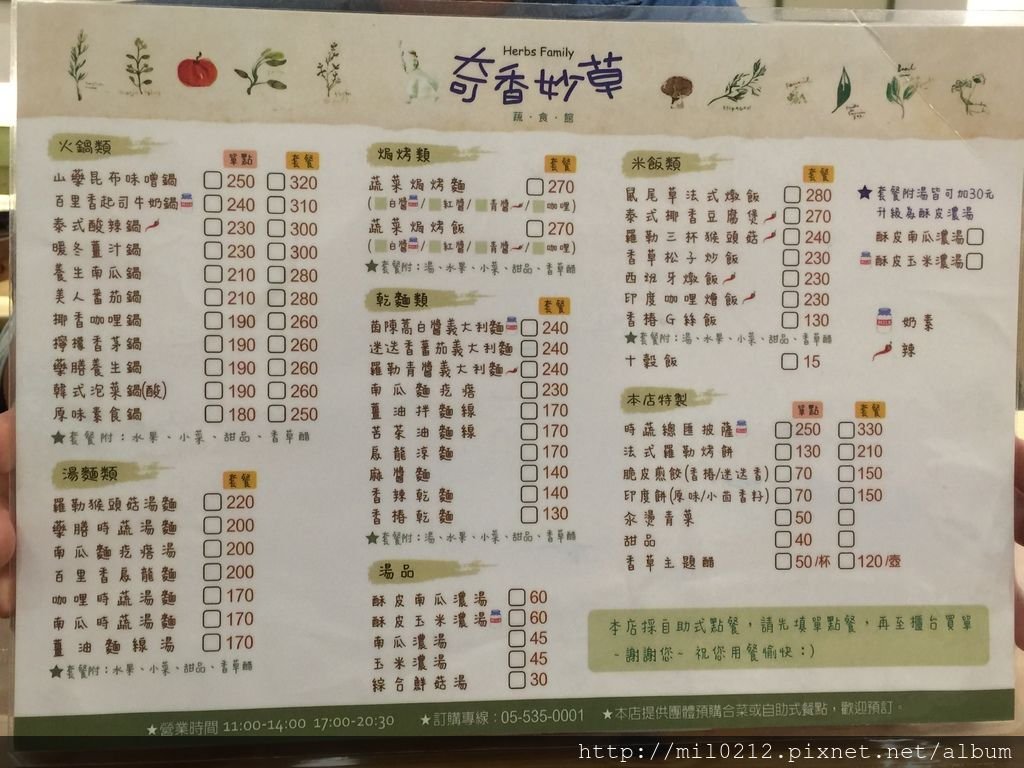 Herbs Family
奇香妙草
蔬·食·館
火鍋類
單點 套餐
山藥昆布味噌鍋 250 320
百里香起司牛奶鍋 240 310
泰式酸辣鍋 230 300
暖冬薑汁鍋 230 300
養生南瓜鍋 210 280
美人番茄鍋 210 280
椰香咖哩鍋 190 260
檸檬香茅鍋 190 260
藥膳養生鍋 190 260
韓式泡菜鍋(酸) 190 260
原味素食鍋 180 250
★套餐附：水果、小菜、甜品、香草醋
湯麵類
套餐
羅勒猴頭菇湯麵 220
藥膳時蔬湯麵 200
南瓜麵疙瘩湯 200
百里香烏龍麵 200
咖哩時蔬湯麵 170
南瓜時蔬湯麵 170
薑油麵線湯 170
★套餐附：水果、小菜、甜品、香草醋
焗烤類
套餐
蔬菜焗烤麵 270
(白醬/紅醬/青醬/咖哩)
蔬菜焗烤飯 270
(白醬/紅醬/青醬/咖哩)
★套餐附：湯、水果、小菜、甜品、香草醋
乾麵類
套餐
茵陳蒿白醬義大利麵 240
迷迭香蕃茄義大利麵 240
羅勒青醬義大利麵 240
南瓜麵疙瘩 230
薑油拌麵線 170
苦茶油麵線 170
烏龍涼麵 170
麻醬麵 140
香辣乾麵 140
香椿乾麵 130
★套餐附：湯、水果、小菜、甜品、香草醋
湯品
酥皮南瓜濃湯 60
酥皮玉米濃湯 60
南瓜濃湯 45
玉米濃湯 45
綜合鮮菇湯 30
米飯類
套餐
鼠尾草法式燉飯 280
泰式椰香豆腐煲 270
羅勒三杯猴頭菇 240
香草松子炒飯 230
西班牙燉飯 230
印度咖哩燴飯 230
香椿G絲飯 130
★套餐附：湯、水果、小菜、甜品、香草醋
十穀飯 15
★套餐附湯皆可加30元
升級為酥皮濃湯
酥皮南瓜濃湯
酥皮玉米濃湯
奶素
辣
本店特製
單點 套餐
時蔬總匯披薩 250 330
法式羅勒烤餅 130 210
脆皮煎餃(香椿/迷迭香) 70 150
印度餅(原味/小茴香籽) 70 150
汆燙青菜 50
甜品 40
香草主題醋 50/杯 120/壺
本店採自助式點餐，請先填單點餐，再至櫃台買單
~謝謝您~ 祝您用餐愉快：)
★營業時間 11:00-14:00 17:00-20:30 ★訂購專線：05-535-0001 ★本店提供團體預購合菜或自助式餐點，歡迎預訂。
http://mil0212.pixnet.net/album